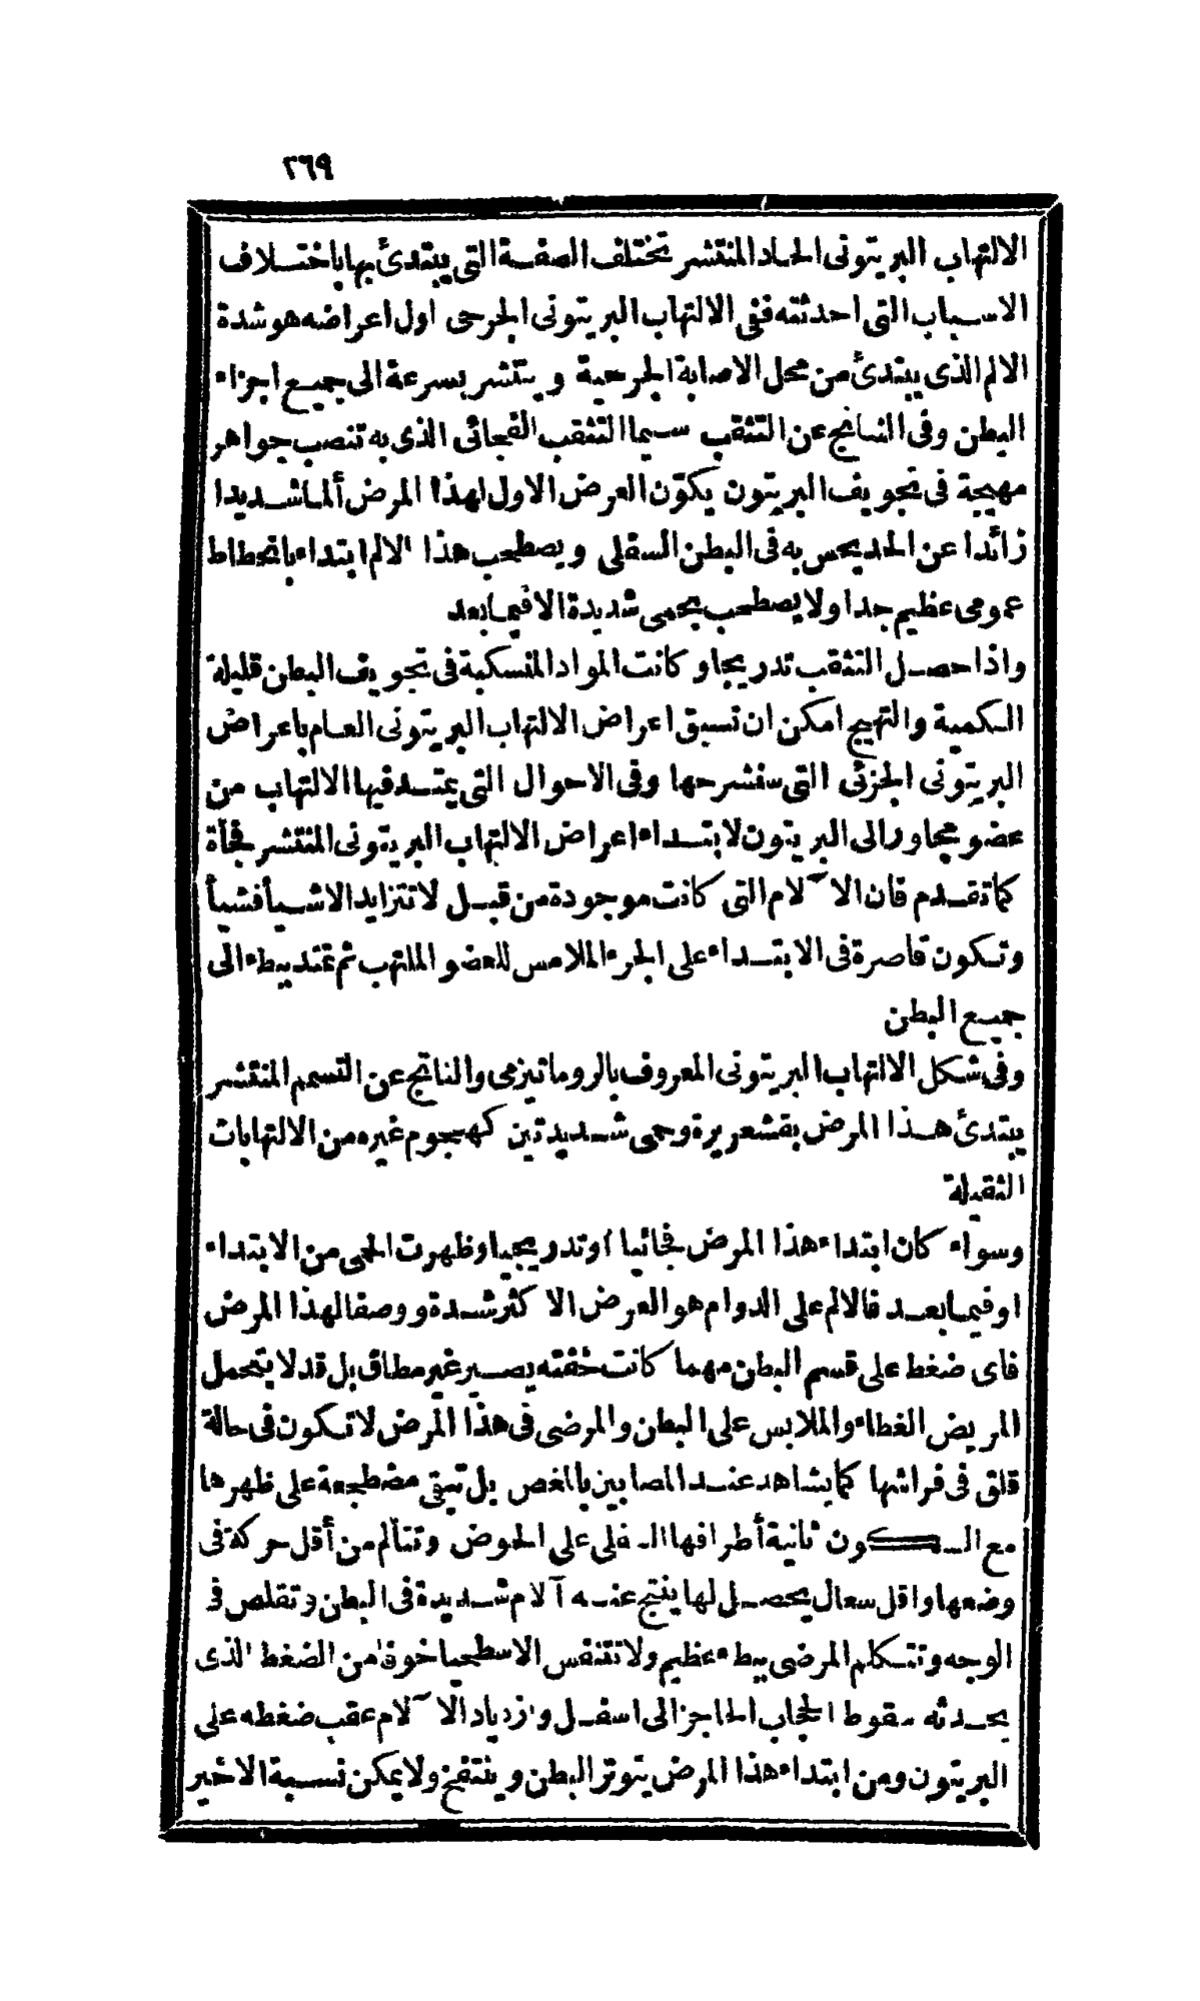 ٢٦٩
الالتهاب البريتونى الحاد المنتشر تختلف الصفة التى يبتدئ بها باختلاف
الاسباب التى احدثته ففى الالتهاب البريتونى الجرحى اول اعراضه هو شدة
الالم الذى يبتدئ من محل الاصابة الجرحية وينتشر بسرعة الى جميع اجزاء
البطن وفى الناتج عن التثقب سيما التثقب الفجائى الذى به تنصب جواهر
مهيجة فى تجويف البريتون يكوّن العرض الاول لهذا المرض ألما شديدا
زائدا عن الحد يحس به فى البطن السفلى ويصطحب هذا الالم ابتداء بانحطاط
عمومى عظيم جدا ولا يصطحب بحمى شديدة الا فيما بعد
واذا حصل التثقب تدريجا وكانت المواد المنسكبة فى تجويف البطن قليلة
الكمية والتهيج امكن ان تسبق اعراض الالتهاب البريتونى العام باعراض
البريتونى الجزئى التى سنشرحها وفى الاحوال التى يمتد فيها الالتهاب من
عضو مجاور الى البريتون لا بتداء اعراض الالتهاب البريتونى المنتشر فجأة
كما تقدم فان الآلام التى كانت موجودة من قبل لا تتزايد الا شيأ فشيأ
وتكون قاصرة فى الابتداء على الجزء الملامس للعضو الملتهب ثم تمتد ببطء الى
جميع البطن
وفى شكل الالتهاب البريتونى المعروف بالروماتيزمى والناتج عن التسمم المنتشر
يبتدئ هذا المرض بقشعريرة وحمى شديدتين كهجوم غيره من الالتهابات
الثقيلة
وسواء كان ابتداء هذا المرض فجائيا او تدريجيا وظهرت الحمى من الابتداء
او فيما بعد فالالم على الدوام هو العرض الاكثر شدة ووصفا لهذا المرض
فاى ضغط على قسم البطن مهما كانت خفته يصير غير مطاق بل قد لا يتحمل
المريض الغطاء والملابس على البطن والمرضى فى هذا المرض لا تكون فى حالة
قلق فى فراشها كما يشاهد عند المصابين بالمغص بل تبقى مضطجعة على ظهرها
مع السكون ثانية أطرافها السفلى على الحوض وتتألم من أقل حركة فى
وضعها واقل سعال يحصل لها ينتج عنه آلام شديدة فى البطن وتقلص فى
الوجه وتتكلم المرضى ببطء عظيم ولا تتنفس الا سطحيا خوفا من الضغط الذى
يحدثه سقوط الحجاب الحاجز الى اسفل وازدياد الآلام عقب ضغطه على
البريتون ومن ابتداء هذا المرض يتوتر البطن وينتفخ ولا يمكن نسبة الاخير